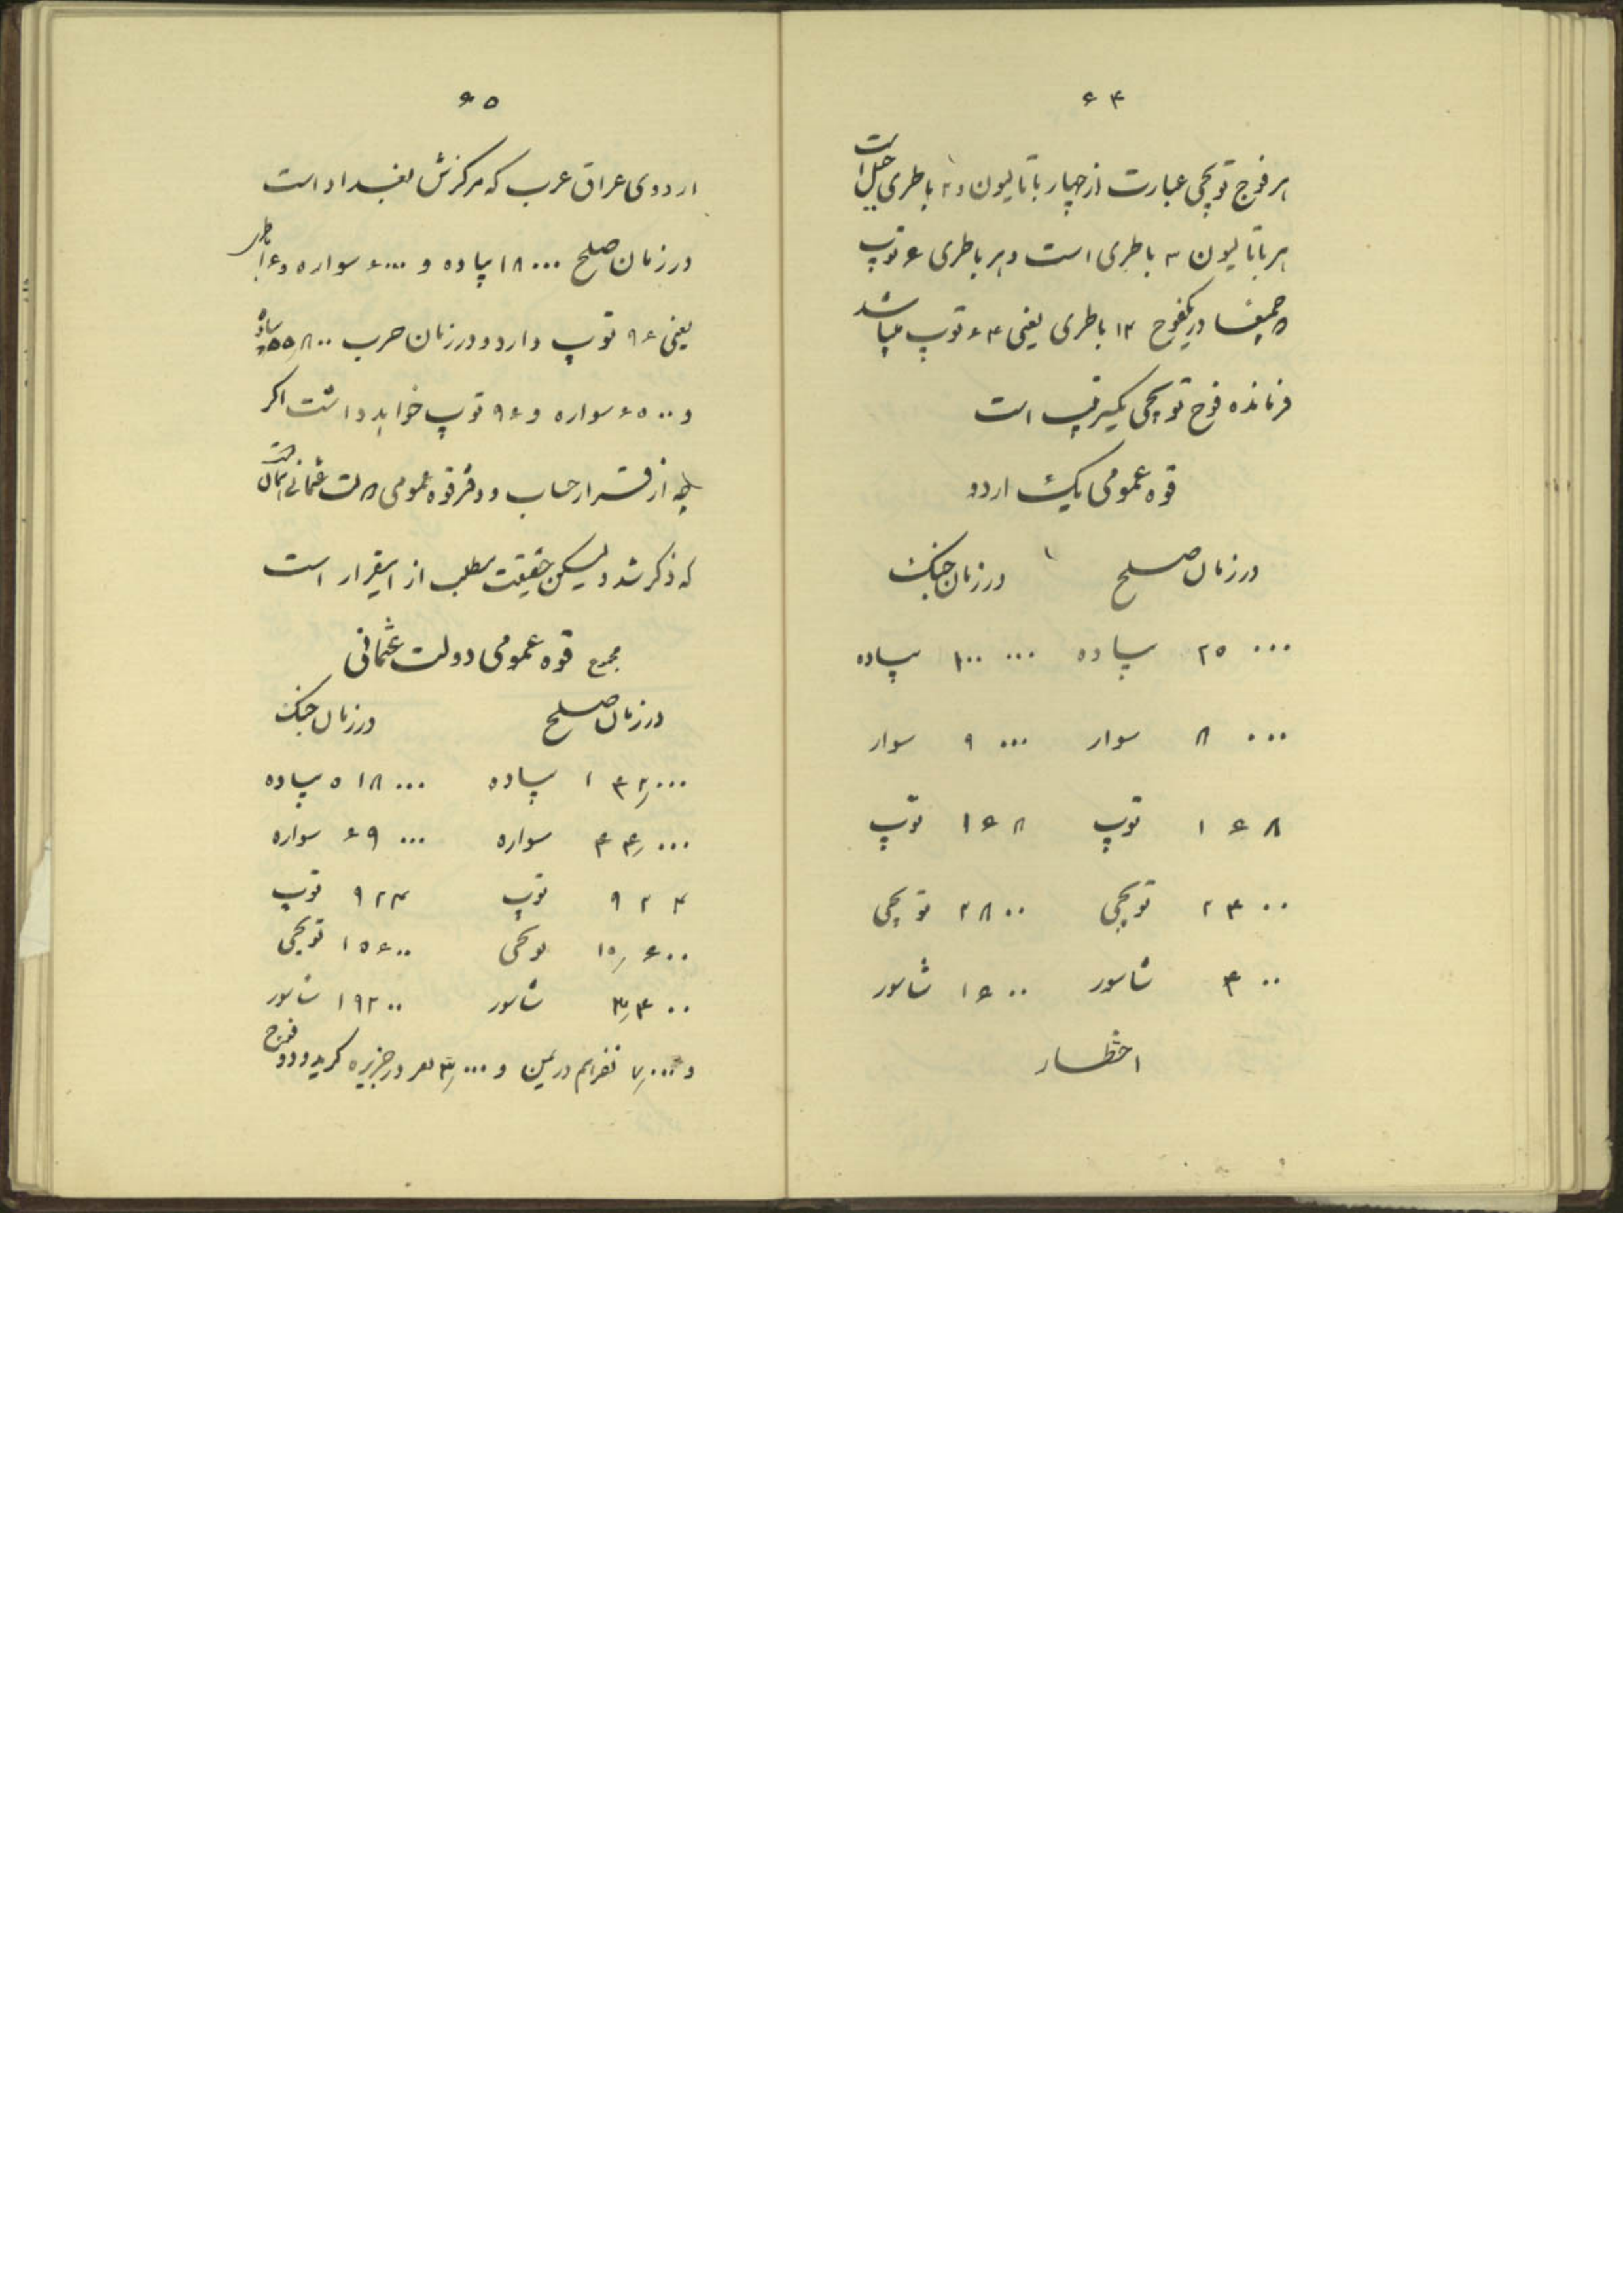 ۶۴
هر فوج توپچی عبارت از چهار باتالیون و ۲ باطری جبل است
هر باتالیون ۳ باطری است و هر باطری ۶ توپ
در یکفوج ۱۴ باطری یعنی ۶۴ توپ میباشد
فرمانده فوج توپچی یکسرتیپ است
قوه عمومی یک اردو
در زمان صلح در زمان جنک
۲۵۰۰۰ پیاده ۱۰۰۰۰۰ پیاده
۸۰۰۰ سوار ۹۰۰۰ سوار
۱۶۸ توپ ۱۶۸ توپ
۲۴۰۰ توپچی ۲۸۰۰ توپچی
۴۰۰ شاسور ۱۶۰۰ شاسور
اخطار
۶۵
اردوی عراق عرب که مرکزش بغداد است
در زمان صلح ۱۸۰۰۰ پیاده و ۶۰۰۰ سواره و ۱۶ باطری
یعنی ۹۶ توپ دارد و در زمان حرب ۵۵٫۸۰۰ پیاده
و ۶۵۰۰ سواره و ۹۶ توپ خواهد داشت اکر
چه از قرار حساب و دفتر قوه عمومی دولت عثمانی همان است
که ذکر شد ولیکن حقیقت مطلب از اینقرار است
مجموع قوه عمومی دولت عثمانی
در زمان صلح در زمان جنک
۱۴۲٫۰۰۰ پیاده ۵۱۸۰۰۰ پیاده
۴۴٫۰۰۰ سواره ۶۹۰۰۰ سواره
۹۲۴ توپ ۹۲۴ توپ
۱۵٫۶۰۰ توپچی ۱۵۶۰۰ توپچی
۳٫۴۰۰ شاسور ۱۹۲۰۰ شاسور
و ۷٫۰۰۰ نفر هم در یمن و ۳٫۰۰۰ نفر در جزیره کرید و دو فوج